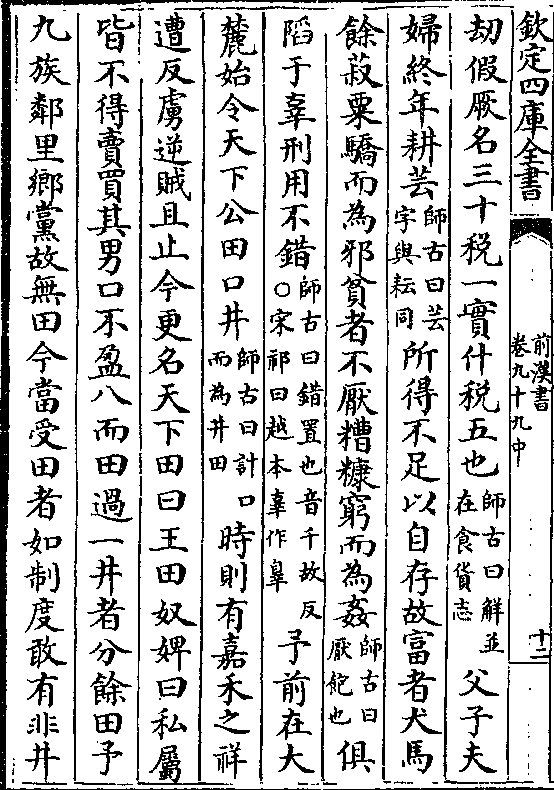 欽定四庫全書
前漢書
卷九十九中
十二
劫假厥名三十税一實什税五也師古曰解並在食貨志父子夫
婦終年耕芸師古曰芸字與耘同所得不足以自存故富者犬馬
餘菽粟驕而為邪貧者不厭糟糠窮而為姦師古曰厭飽也俱
䧟于辜刑用不錯師古曰錯置也音千故反○宋祁曰越本辜作辠予前在大
麓始令天下公田口井師古曰計口而為井田時則有嘉禾之祥
遭反虜逆賊且止今更名天下田曰王田奴婢曰私屬
皆不得賣買其男口不盈八而田過一井者分餘田予
九族鄰里鄉黨故無田今當受田者如制度敢有非井